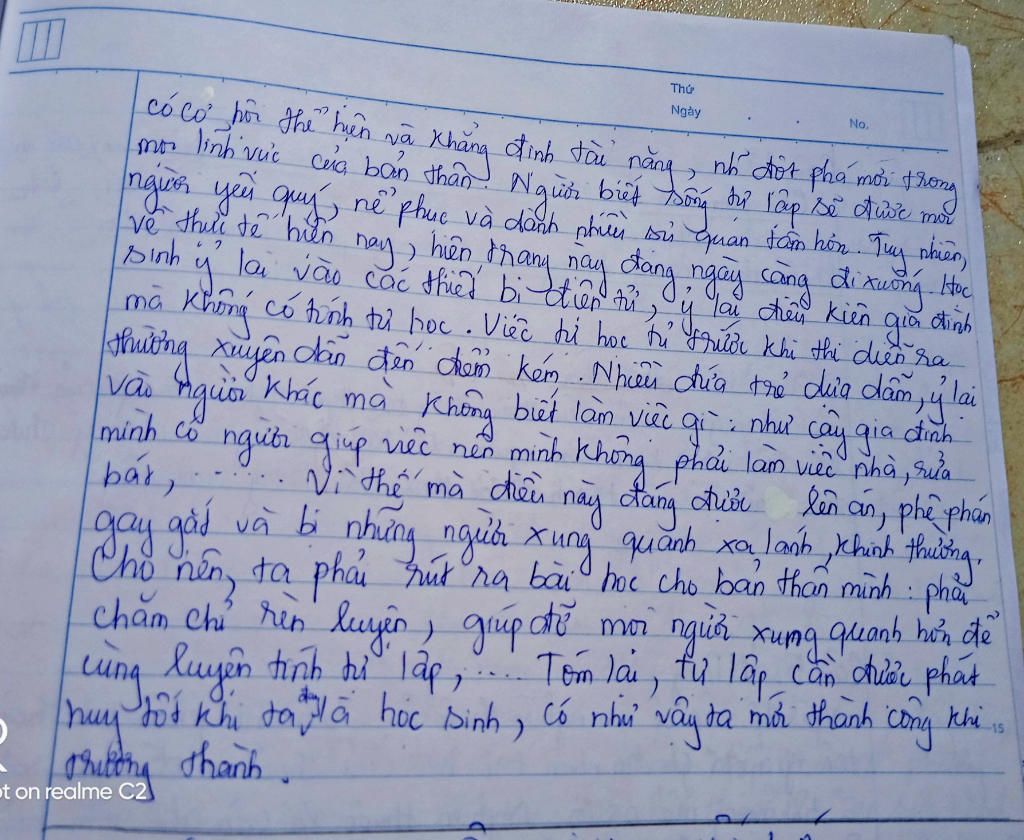 Thứ
Ngày . . No.
có cơ hội thể hiện và khẳng định tài năng, nh đột phá mới trong
mọi lĩnh vực của bản thân. Người biết sống tự lập sẽ được mọi
người yêu quý, nể phục và dành nhiều sự quan tâm hơn. Tuy nhiên,
về thực tế hiện nay, hiện trạng này đang ngày càng đi xuống. Học
sinh ỷ lại vào các thiết bị điện tử, ỷ lại điều kiện gia đình
mà không có tính tự học. Việc tự học từ trước khi thi diễn ra
thường xuyên dẫn đến điểm kém. Nhiều đứa trẻ dựa dẫm, ỷ lại
vào người khác mà không biết làm việc gì: như cậy gia đình
mình có người giúp việc nên mình không phải làm việc nhà, rửa
bát, ....... Vì thế mà điều này đáng được lên án, phê phán
gay gắt và bị những người xung quanh xa lánh, khinh thường.
Cho nên, ta phải rút ra bài học cho bản thân mình: phải
chăm chỉ rèn luyện, giúp đỡ mọi người xung quanh hơn để
cùng luyện tính tự lập, .... Tóm lại, tự lập cần được phát
huy tốt khi ta đang là học sinh, có như vậy ta mới thành công khi
trưởng thành.
15
R
ot on realme C2